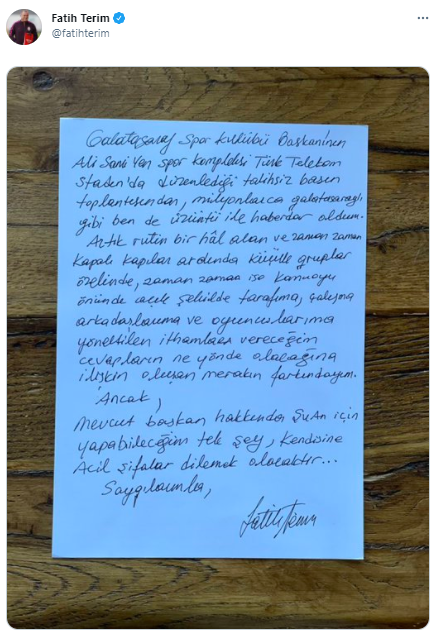 Fatih Terim
@fatihterim
Galatasaray Spor Kulübü Başkanı'nın
Ali Sami Yen Spor Kompleksi Türk Telekom
Stadın'da düzenlediği talihsiz basın
toplantısından, milyonlarca galatasaraylı
gibi ben de üzüntü ile haberdar oldum.
Artık rutin bir hâl alan ve zaman zaman
kapalı kapılar ardında küçük gruplar
özelinde, zaman zaman ise kamuoyu
önünde açık şekilde tarafıma, çalışma
arkadaşlarıma ve oyuncularıma
yöneltilen ithamlara vereceğim
cevapların ne yönde olacağına
ilişkin oluşan merakın farkındayım.
Ancak,
mevcut başkan hakkında şu an için
yapabileceğim tek şey, kendisine
Acil şifalar dilemek olacaktır...
Saygılarımla,
Fatih Terim